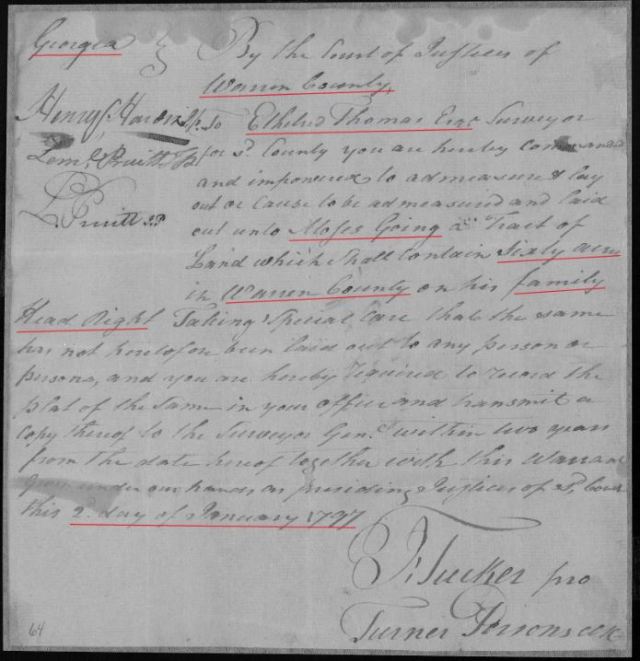 Georgia
By the Court of Justices of
Warren County,
Henry Hardin JP. To Etheldred Thomas Esqr Surveyor
Leml. Pruitt JP for sd. County you are hereby commanded
and impowered to admeasure & lay
L Pruitt JP out or cause to be admeasured and laid
out unto Moses Going a Tract of
Land which shall contain Sixty acres
in Warren County on his family
Head Right Taking Special Care that the same
has not heretofore been laid out to any person or
persons, and you are hereby required to record the
plat of the same in your office and transmit a
copy thereof to the Surveyor Genl. within two years
from the date hereof together with this Warrant
Given under our hands as presiding Justices of sd. Court
this 2d. day of January 1797
J Tucker pro
Turner Persons CCK
64